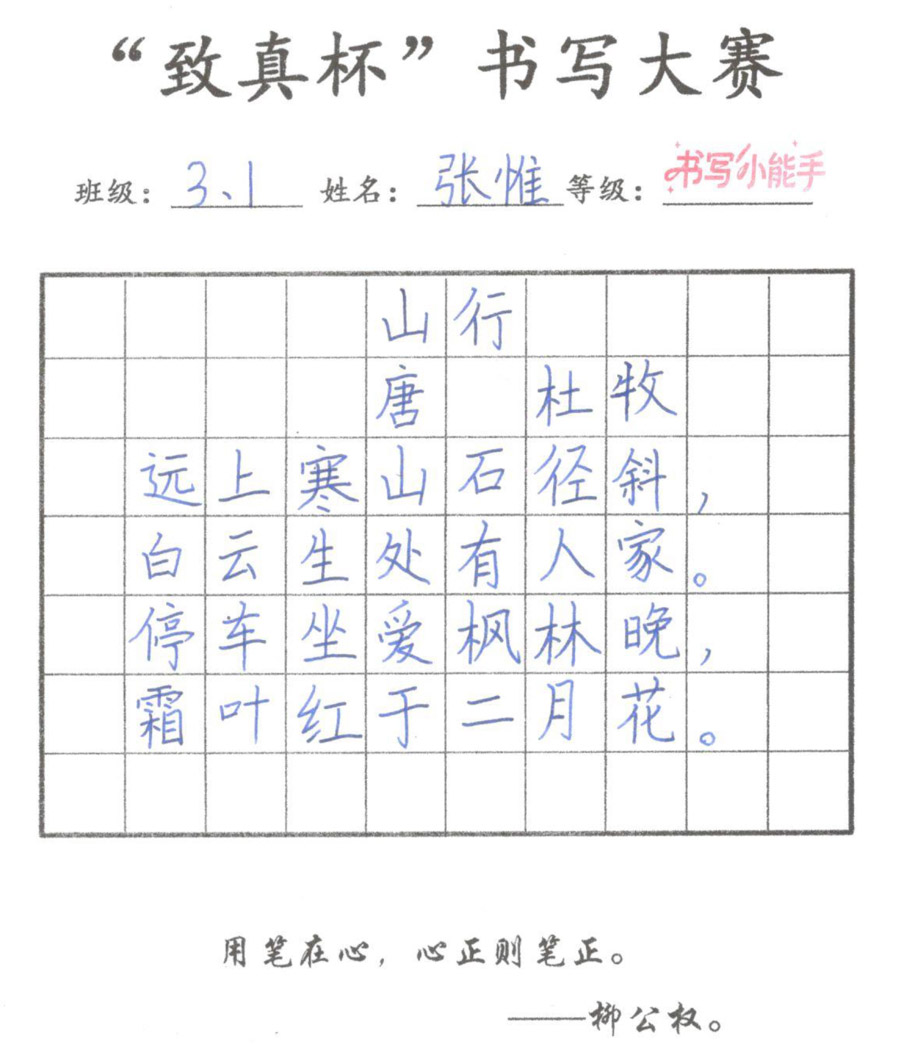 “致真杯”书写大赛
班级：3、1 姓名：张惟 等级：书写小能手
山行
唐 杜牧
远上寒山石径斜，
白云生处有人家。
停车坐爱枫林晚，
霜叶红于二月花。
用笔在心，心正则笔正。
——柳公权。